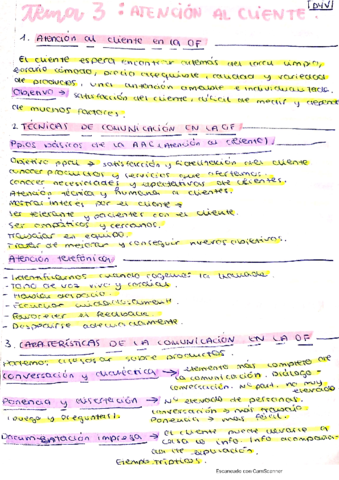 Tema 3: ATENCIÓN AL CLIENTE. [DYV]
1. Atención al cliente en la OF
El cliente espera encontrar además del local limpio,
horario cómodo, precio asequible, calidad y variedad
de productos, una atención amable e individualizada.
Objetivo → satisfacción del cliente, difícil de medir y depende
de muchos factores.
2. TÉCNICAS DE COMUNICACIÓN EN LA OF
Ppios básicos de la AAC (atención al cliente).
Objetivo ppal → satisfacción y fidelización del cliente
conocer productos y servicios que ofertamos.
conocer necesidades y expectativas de clientes.
Atención técnica y humana a clientes.
Mostrar interés por el cliente
Ser tolerante y pacientes con el cliente.
Ser empáticos y cercanos.
Trabajar en equipo.
Tratar de mejorar y conseguir nuevos objetivos.
Atención telefónica
- Identificarnos cuando cogemos la llamada.
- Tono de voz vivo y cordial.
- Hablar despacio.
- Escuchar
- Favorecer el feedback
- Despedirse adecuadamente.
3. CARACTERÍSTICAS DE LA COMUNICACIÓN EN LA OF
sobre productos.
Conversación y → elemento más completo de
la comunicación. Diálogo-
conversación. Nº part. no muy
elevado
Ponencia y disertación → Nº elevado de personas.
(luego y preguntas). conversación → más trabajo
Ponencia → más fácil.
Documentación impresa → el cliente puede llevarse a
casa la info. Info acompaña-
da de explicación.
Ejemplo trípticos.
Escaneado con CamScanner